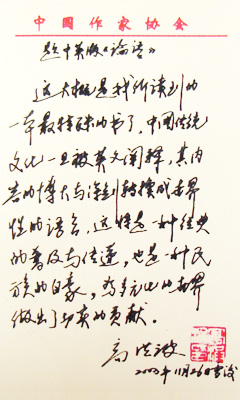 中国作家协会
题中英版《论语》
这大概是我所读到的
一本最特殊的书了，中国传统
文化一旦被英文阐释，其内
容的博大与深刻转换成世界
性的语言，这将是一种经典
的普及与传递，也是一种民
族的自豪，为多元化的世界
做出了切实的贡献。
高洪波
2007年11月26日